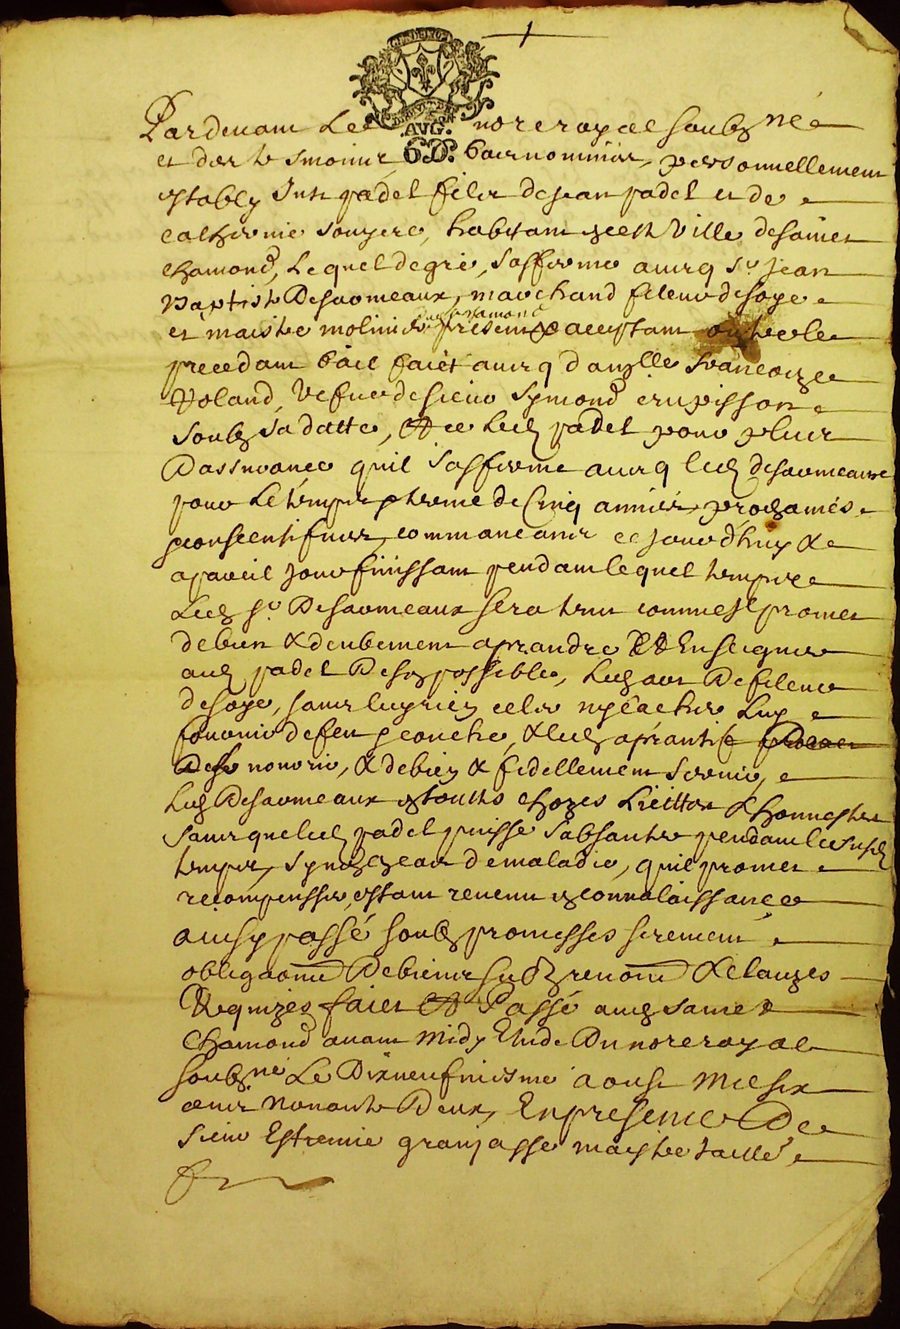 1
GEN DE LYON
AVG.
6D.
Pardevant Le nore royal soubzné
et des tesmoins bas nommés, personnellement
estably padel filz de Jean padel et de
Catherine habitant ceste Ville de sainct
chamond, Lequel de gré, s'afferme avecq Sr Jean
Baptiste Desormeaux, marchand fileur de soye
et maistre molinier present & acceptant
precedant bail faict avecq damlle francoize
Voland, Vefve de sieur Symond
soubz sa datte, Et ce Led padel pour plus
D'assurance quil s'afferme avecq led desormeaux
pour Le temps & terme de Cinq années, prochaines
& consecutifves, commanceant ce jourd'huy &
a pareil jour finissant pendant lequel temps
Led Sr Desormeaux sera tenu comme Il promet
de bien & deubement aprandre Et Enseigner
aud padel De son possible, Led art De fileur
de soye, sans luy rien celer ny cacher Luy
fournir de feu & couche, & led aprantif
De se norrir, & de bien & fidellement servir,
Led Desormeaux en touttes chozes Licittes & honnestes
sans que led padel puisse s'absanter pendant led susd
temps, synon en cas de maladie, quil promet
recompenser, estant revenu en connalaissance
ainsy passé soubz promesses serement
obligaons De biens submon renonon & clauzes
Requizes faict Et Passé aud sainct
Chamond avant Midy Etude Du nore royal
soubzné Le Dixneufviesme aoust mil six
cens Nonante Deux, En presence De
Sieur Estienne granjasse maistre taillé